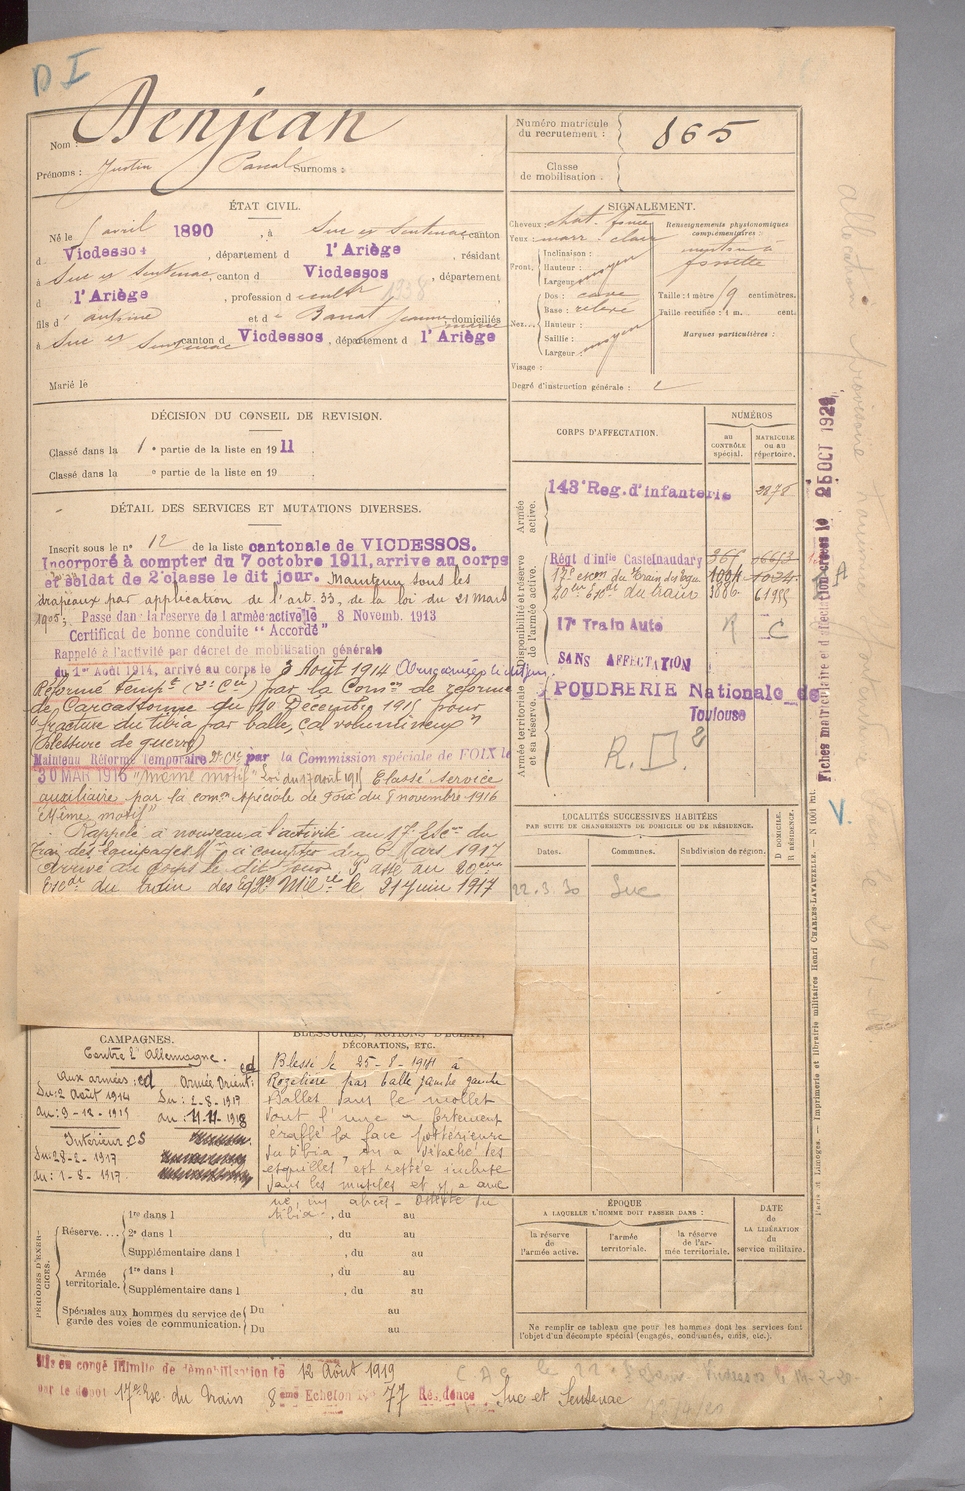 D I
Nom : Denjean
Prénoms : Justin Pascal Surnoms :
Numéro matricule du recrutement : 865
Classe de mobilisation :
ÉTAT CIVIL.
Né le 5 avril 1890, à Suc et Sentenac canton
d Vicdessos, département d l'Ariège, résidant
à Suc et Sentenac, canton d Vicdessos, département
d l'Ariège, profession d cultr
fils d' antoine et d Jeanne marie domiciliés
à Suc et Sentenac canton d Vicdessos, département d l'Ariège
Marié le
SIGNALEMENT.
Cheveux : chat. foncé
Yeux : marr. clair
Front. Inclinaison :
Hauteur : moyen
Largeur :
Nez. Dos : cave
Base : relevé
Hauteur :
Saillie : moyen
Largeur :
Visage :
Renseignements physionomiques complémentaires :
menton à
fossette
Taille : 1 mètre centimètres.
Taille rectifiée : 1 m. cent.
Marques particulières :
Degré d'instruction générale :
DÉCISION DU CONSEIL DE REVISION.
Classé dans la 1e partie de la liste en 1911.
Classé dans la e partie de la liste en 19 .
DÉTAIL DES SERVICES ET MUTATIONS DIVERSES.
Inscrit sous le n° 12 de la liste cantonale de VICDESSOS.
Incorporé à compter du 7 octobre 1911, arrive au corps
et soldat de 2e classe le dit jour. Maintenu sous les
drapeaux par application de l'art. 33, de la loi du 21 Mars
1905; Passe dans la reserve de l armée active le 8 Novemb. 1913
Certificat de bonne conduite "Accordé"
Rappelé à l'activité par décret de mobilisation générale
du 1er Août 1914, arrivé au corps le 3 Août 1914
Réformé tempre (2e Cie) par la Comon de réforme
de Carcassonne du 10 Décembre 1915 pour
"fracture du tibia par balle, cal volumineux"
(Blessure de guerre)
Maintenu Réformé temporaire 2e Cie par la Commission spéciale de FOIX le
30 MAR 1916 "Même motif" Loi du 17 août 1915 Classé service
auxiliaire par la comon spéciale de Foix du 8 novembre 1916
"Même motif"
Rappelé à nouveau à l'activité au 17e Escon du
Train des équipages Mres à compter du 6 Mars 1917
Arrivé au corps le dit jour. Passé au 20eme
Escon du train des Eqges Milres le 21 juin 1917
CORPS D'AFFECTATION.
NUMÉROS
AU CONTRÔLE spécial.
MATRICULE OU AU répertoire.
Armée active.
143e Reg. d'infanterie
Disponibilité et réserve de l'armée active.
Régt d'infie Castelnaudary
17e escon du Train des Equ 1004
20eme escon du train 3886
17e Train Auto R C
SANS AFFECTATION
Armée territoriale et sa réserve.
POUDRERIE Nationale de
Toulouse
R.D2
LOCALITÉS SUCCESSIVES HABITÉES
PAR SUITE DE CHANGEMENTS DE DOMICILE OU DE RÉSIDENCE.
Dates. Communes. Subdivision de région. D DOMICILE. R RÉSIDENCE.
22.3.30 Suc
CAMPAGNES.
Contre l'Allemagne.
Aux armées : cd
Du : 2 Août 1914
au : 9-12-1915
Intérieur cs
Du : 28-2-1917
au : 1-8-1917
Armée Orient : cd
Du : 2-8-1917
au : 11-11-1918
BLESSURES, ACTIONS D'ÉCLAT, DÉCORATIONS, ETC.
Blessé le 25-8-1914 à
Rozelière par balle jambe gauche
Balles dans le mollet
dont l'une a fortement
éraflé la face postérieure
du tibia, en a détaché des
esquilles est restée incluse
dans les muscles et y a ame
né un abcès - Ostéite du
tibia
PÉRIODES D'EXERCICES.
Réserve.... 1re dans l , du au
2e dans l , du au
Supplémentaire dans l , du au
Armée territoriale. 1re dans l , du au
Supplémentaire dans l , du au
Spéciales aux hommes du service de garde des voies de communication. Du au
Du au
ÉPOQUE
A LAQUELLE L'HOMME DOIT PASSER DANS :
la réserve de l'armée active.
l'armée territoriale.
la réserve de l'armée territoriale.
DATE de LA LIBÉRATION du service militaire.
Ne remplir ce tableau que pour les hommes dont les services font
l'objet d'un décompte spécial (engagés, condamnés, omis, etc.).
Mis en congé illimité de démobilisation le 12 Août 1919
par le dépôt 17e Esc. du Train 8eme Echelon No 77 Résidence Suc et Sentenac
Fiches matriculaire et d'affectation créées le 25 OCT 192
Paris et Limoges. — Imprimerie et librairie militaires Henri CHARLES-LAVAUZELLE. — N° 1001 bis.
V.